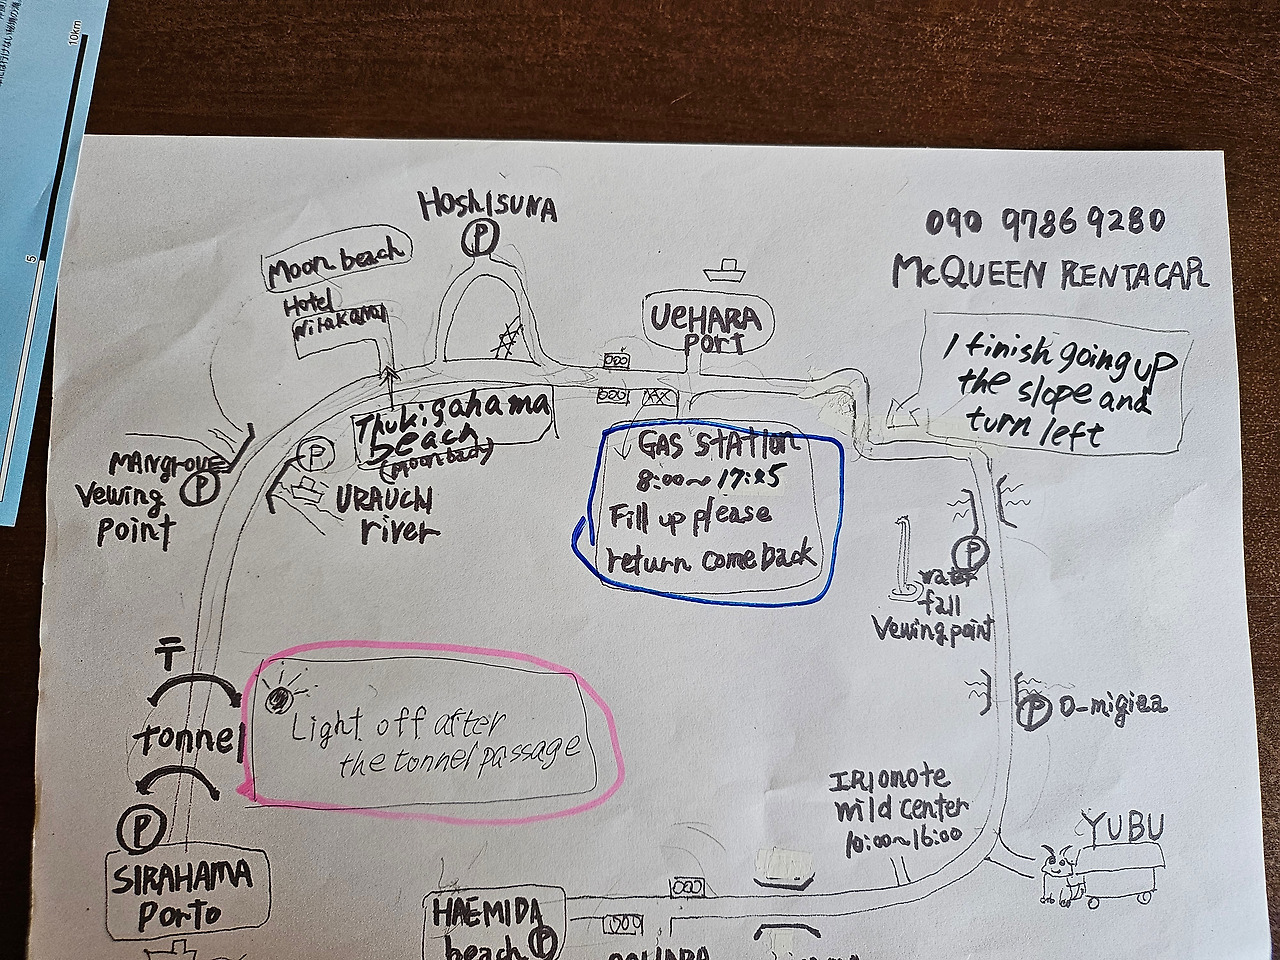 10km
5
HOSHISUNA
P
Moon beach
Hotel
090 9786 9280
McQUEEN RENTACAR
UEHARA
port
I finish going up
the slope and
turn left
Thukigahama
beach
P
URAUCHI
river
MANgrove
Vewing
point
P
GAS STATION
Fill up please
return come back
P
water
fall
Vewing point
〒
tonnel
Light off after
the tonnel passage
P
SIRAHAMA
Porto
P
IRIomote
wild center
10:00~16:00
YUBU
HAEMIDA
beach P